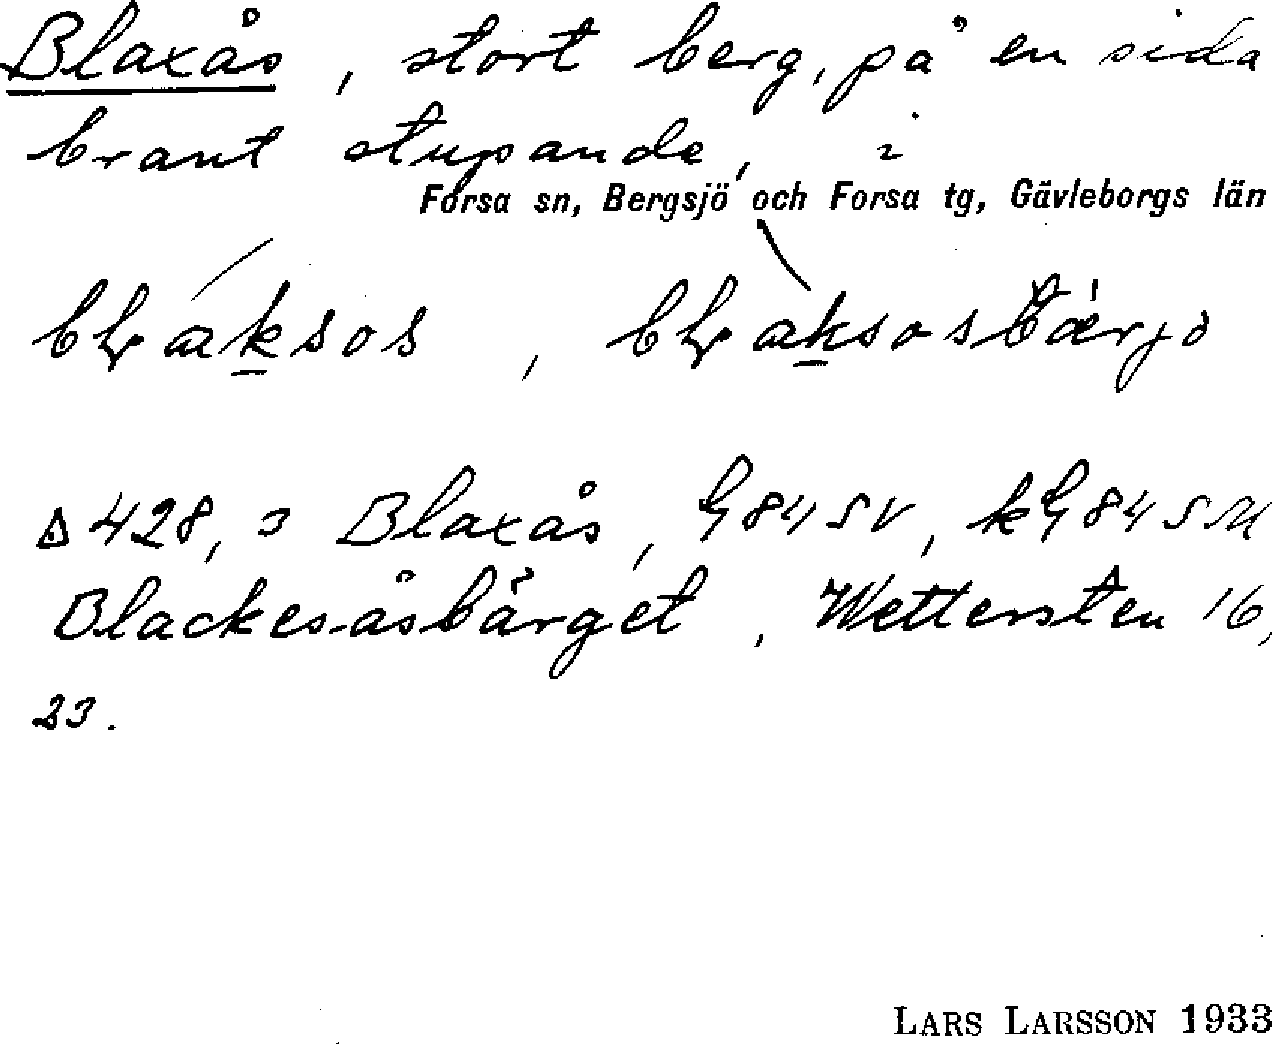 Blaxås, stort berg, på en sida
brant stupande, i
Forsa sn, Bergsjö och Forsa tg, Gävleborgs län
Δ 428, Blaxås, G84SV, kG84SV
Blackes-åsbärget, Wettersten 16,
23.
LARS LARSSON 1933